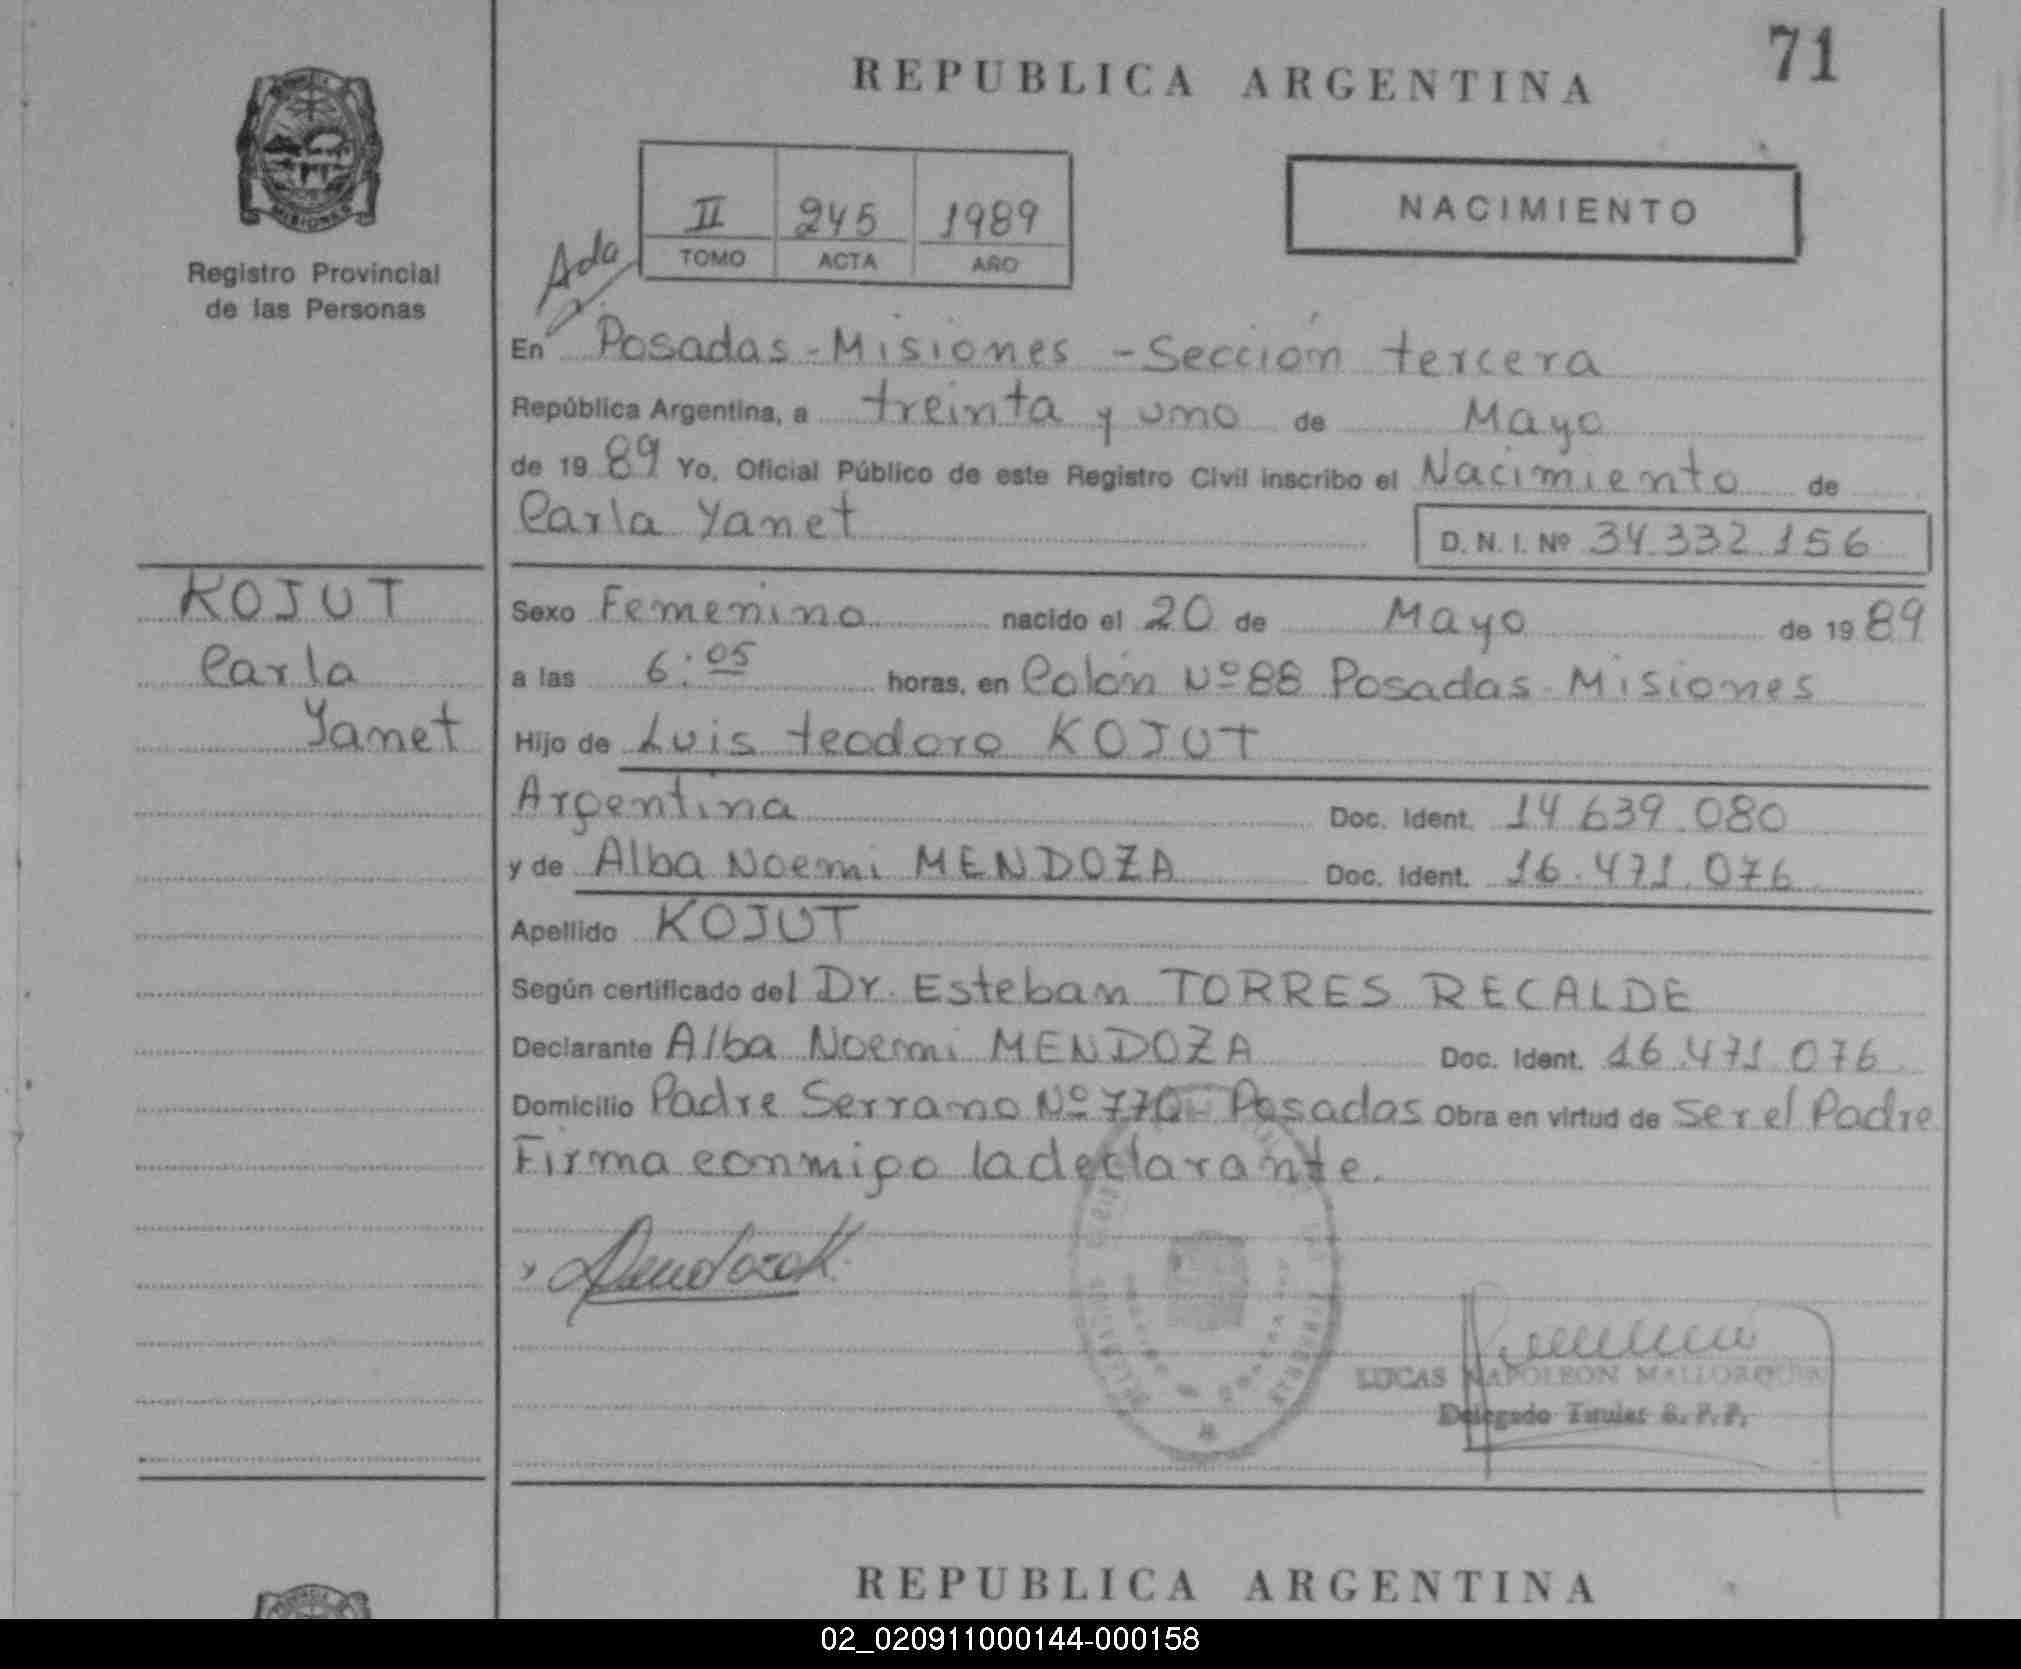 71
REPUBLICA ARGENTINA
MISIONES
Registro Provincial
de las Personas
II 245 1989
TOMO ACTA AÑO
NACIMIENTO
Ada
En Posadas - Misiones - Sección tercera
República Argentina, a treinta y uno de Mayo
de 1989 Yo, Oficial Público de este Registro Civil inscribo el Nacimiento de
Carla Yanet
D. N. I. Nº 34.332.156
KOJUT
Carla
Yanet
Sexo Femenino nacido el 20 de Mayo de 1989
a las 6:05 horas, en Colón Nº 88 Posadas - Misiones
Hijo de Luis teodoro KOJUT
Argentina Doc. Ident. 14.639.080
y de Alba Noemi MENDOZA Doc. Ident. 16.471.076
Apellido KOJUT
Según certificado del Dr. Esteban TORRES RECALDE
Declarante Alba Noemi MENDOZA Doc. Ident. 16.471.076
Domicilio Padre Serrano Nº 770 - Posadas Obra en virtud de ser el Padre
Firma conmigo la declarante.
MendozaK.
LUCAS NAPOLEON MALLORQUIN
Delegado Titular R. P. P.
REPUBLICA ARGENTINA
02_020911000144-000158